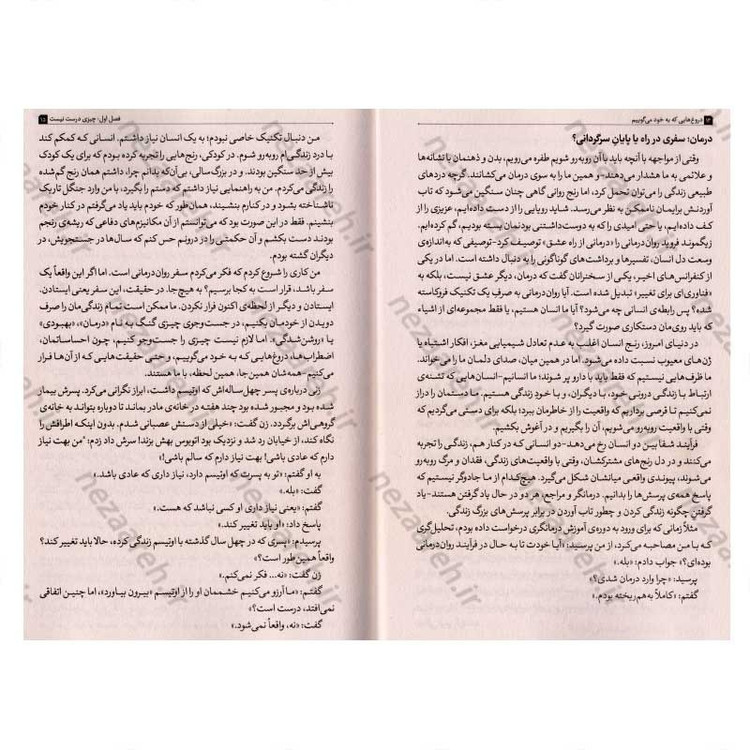 ۱۴ دروغ‌هایی که به خود می‌گوییم
درمان؛ سفری در راه یا پایان سرگردانی؟
وقتی از مواجهه با آنچه باید با آن روبه‌رو شویم طفره می‌رویم، بدن و ذهنمان با نشانه‌ها
و علائمی به ما هشدار می‌دهند–و همین ما را به سوی درمان می‌کشانند. گرچه دردهای
طبیعی زندگی را می‌توان تحمل کرد، اما رنج روانی گاهی چنان سنگین می‌شود که تاب
آوردنش برایمان ناممکن به نظر می‌رسد. شاید رویایی را از دست داده‌ایم، عزیزی را از
کف داده‌ایم، یا حتی امیدی را که به دوست‌داشتنی بودنمان بسته بودیم، گم کرده‌ایم.
زیگموند فروید روان‌درمانی را «درمانی از راه عشق» توصیف کرد–توصیفی که به‌اندازه‌ی
وسعت دل انسان، تفسیرها و برداشت‌های گوناگونی را به دنبال داشته است. اما در یکی
از کنفرانس‌های اخیر، یکی از سخنرانان گفت که درمان، دیگر عشق نیست، بلکه به
«فناوری‌ای برای تغییر» تبدیل شده است. آیا روان‌درمانی به صرفِ یک تکنیک فروکاسته
شده؟ پس رابطه‌ی انسانی چه می‌شود؟ آیا ما انسان هستیم، یا فقط مجموعه‌ای از اشیاء
که باید روی‌مان دستکاری صورت گیرد؟
در دنیای امروز، رنج انسان اغلب به عدم تعادل شیمیایی مغز، افکار اشتباه یا
ژن‌های معیوب نسبت داده می‌شود. اما در همین میان، صدای دلمان ما را فرا می‌خواند.
ما ظرف‌هایی نیستیم که فقط باید با دارو پر شوند؛ ما انسانیم–انسان‌هایی که تشنه‌ی
ارتباط با زندگی درونی خود، با دیگران، و با خودِ زندگی هستیم. ما دستمان را دراز
نمی‌کنیم تا قرصی برداریم که واقعیت را از خاطرمان ببرد؛ بلکه برای دستی می‌گردیم که
وقتی با واقعیت روبه‌رو می‌شویم، آن را بگیریم و در آغوش بکشیم.
فرآیند شفا بین دو انسان رخ می‌دهد–دو انسانی که در کنار هم، زندگی را تجربه
می‌کنند و در دل رنج‌های مشترکشان، وقتی با واقعیت‌های زندگی، فقدان و مرگ روبه‌رو
می‌شوند، پیوندی واقعی میانشان شکل می‌گیرد. هیچ‌کدام از ما جادوگر نیستیم که
پاسخ همه‌ی پرسش‌ها را بدانیم. درمانگر و مراجع، هر دو در حال یاد گرفتن هستند–یاد
گرفتن چگونه زندگی کردن و چطور تاب آوردن در برابر پرسش‌های بزرگ زندگی.
مثلاً زمانی که برای ورود به دوره‌ی آموزش درمانگری درخواست داده بودم، تحلیل‌گری
که با من مصاحبه می‌کرد، از من پرسید: «آیا خودت تا به حال در فرآیند روان‌درمانی
بوده‌ای؟» جواب دادم: «بله.»
پرسید: «چرا وارد درمان شدی؟»
گفتم: «کاملاً به‌هم‌ریخته بودم.»
فصل اول: چیزی درست نیست ۱۵
من دنبال تکنیک خاصی نبودم؛ به یک انسان نیاز داشتم. انسانی که کمکم کند
با درد زندگی‌ام روبه‌رو شوم. در کودکی، رنج‌هایی را تجربه کرده بودم که برای یک کودک
بیش از حد سنگین بودند. و در بزرگ‌سالی، بی‌آن‌که بدانم چرا، داشتم همان رنج گم‌شده
را زندگی می‌کردم. من به راهنمایی نیاز داشتم که دستم را بگیرد، با من وارد جنگل تاریک
ناشناخته بشود و در کنارم بنشیند، همان‌طور که خودم باید یاد می‌گرفتم در کنار خودم
بنشینم. فقط در این صورت بود که می‌توانستم از آن مکانیزم‌های دفاعی که ریشه‌ی رنجم
بودند دست بکشم و آن حکمتی را در درونم حس کنم که سال‌ها در جستجویش، در
دیگران گشته بودم.
من کاری را شروع کردم که فکر می‌کردم سفر روان‌درمانی است. اما اگر این واقعاً یک
سفر باشد، قرار است به کجا برسیم؟ به هیچ‌جا. در حقیقت، این سفر یعنی ایستادن.
ایستادن و دیگر از لحظه‌ی اکنون فرار نکردن. ما ممکن است تمام زندگی‌مان را صرف
دویدن از خودمان بکنیم، در جست‌وجوی چیزی گنگ به نام «درمان»، «بهبودی»
یا «روشن‌شدگی». اما لازم نیست چیزی را جست‌وجو کنیم، چون احساساتمان،
اضطراب‌ها، دروغ‌هایی که به خود می‌گوییم، و حتی حقیقت‌هایی که از آن‌ها فرار
می‌کنیم–همه‌شان همین‌جا، همین لحظه، با ما هستند.
زنی درباره‌ی پسر چهل‌ساله‌اش که اوتیسم داشت، ابراز نگرانی می‌کرد. پسرش بیمار
شده بود و مجبور شده بود چند هفته در خانه‌ی مادر بماند تا دوباره بتواند به خانه‌ی
گروهی‌اش برگردد. زن گفت: «خیلی از دستش عصبانی شدم. بدون اینکه اطرافش را
نگاه کند، از خیابان رد شد و نزدیک بود اتوبوس بهش بزند! سرش داد زدم: "من بهت نیاز
دارم که عادی باشی! بهت نیاز دارم که سالم باشی!"»
به او گفتم: «تو به پسرت که اوتیسم دارد، نیاز داری که عادی باشد.»
گفت: «بله.»
گفتم: «یعنی نیاز داری او کسی نباشد که هست.»
پاسخ داد: «او باید تغییر کند.»
پرسیدم: «پسری که در چهل سال گذشته با اوتیسم زندگی کرده، حالا باید تغییر کند؟
واقعاً همین‌طور است؟»
زن گفت: «نه... فکر نمی‌کنم.»
گفتم: «ما آرزو می‌کنیم خشممان او را از اوتیسم «بیرون بیاورد»، اما چنین اتفاقی
نمی‌افتد، درست است؟»
گفت: «نه، واقعاً نمی‌شود.»
nezaareh.ir